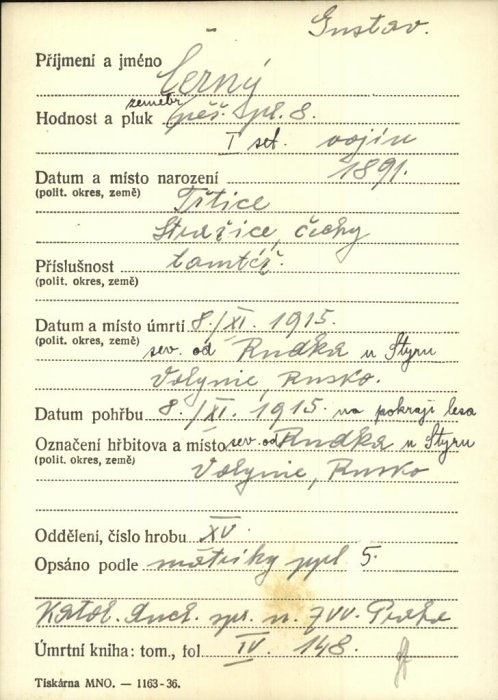 Gustav.
Příjmení a jméno Černý
Hodnost a pluk zeměbr. pěš. pl. 8.
I set. vojín
Datum a místo narození 1891.
(polit. okres, země) Třtice
Strašice, Čechy
Příslušnost tamtéž.
(polit. okres, země)
Datum a místo úmrtí 8./XI. 1915.
(polit. okres, země) sev. od Rudka u Styru
Volynie, Rusko.
Datum pohřbu 8./XI. 1915. na pokraji lesa
Označení hřbitova a místo sev. od Rudka u Styru
(polit. okres, země) Volynie, Rusko
Oddělení, číslo hrobu XV.
Opsáno podle matriky ppl 5.
Katol. duch. spr. n. ZVV. Praha
Úmrtní kniha: tom., fol IV. 148.
Tiskárna MNO. — 1163-36.